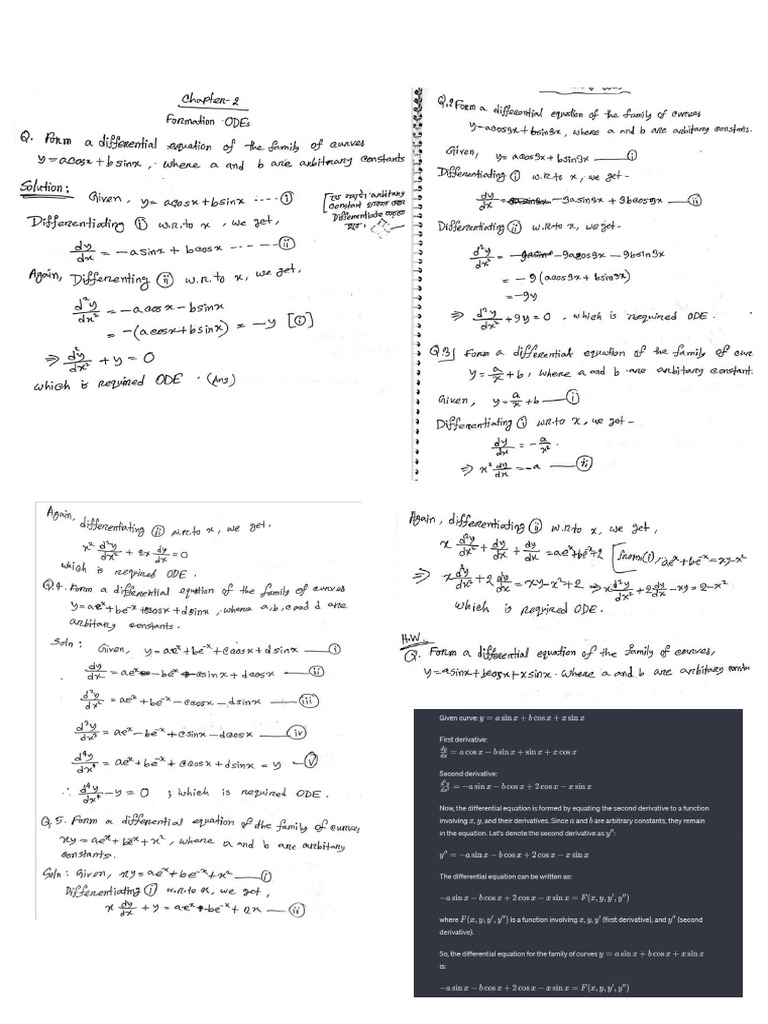 Chapter-2
Formation ODEs
Q. Form a differential equation of the family of curves
y = acosx + bsinx, where a and b are arbitrary constants
Solution: Given, y = acosx + bsinx ---- (i)
Differentiading (i) w.r.to x, we get,
dy/dx = -asinx + bcosx ---- (ii)
Again, Differenting (ii) w.r.to x, we get,
d²y/dx² = -acosx - bsinx
= -(acosx + bsinx) = -y [(i)]
⇒ d²y/dx² + y = 0
which is required ODE. (Ans)
arbitrary
constant
Differentiate
Q.2 Form a differential equation of the family of curves
y = acos3x + bsin3x, where a and b are arbitary constants.
Given, y = acos3x + bsin3x — (i)
Differentiating (i) w.r.to x, we get -
dy/dx = -3asin3x + 3bcos3x — (ii)
Differentiating (ii) w.r.to x, we get -
d²y/dx² = -9acos3x - 9bsin3x
= -9(acos3x + bsin3x)
= -9y
⇒ d²y/dx² + 9y = 0, which is required ODE.
Q.3| Form a differential equation of the family of cur
y = a/x + b, where a and b are arbitary constant.
Given, y = a/x + b — (i)
Differentiating (i) w.r.to x, we get -
dy/dx = -a/x².
⇒ x² dy/dx = -a — (ii)
Again, differentiating (ii) w.r.to x, we get,
x² d²y/dx² + 2x dy/dx = 0
which is required ODE.
Q.4. Form a differential equation of the family of curves
y = ae^x + be^-x + ccosx + dsinx, where a, b, c and d are
arbitary constants.
Soln: Given, y = ae^x + be^-x + ccosx + dsinx — (i)
dy/dx = ae^x - be^-x - csinx + dcosx — (ii)
d²y/dx² = ae^x + be^-x - ccosx - dsinx — (iii)
d³y/dx³ = ae^x - be^-x + csinx - dcosx — (iv)
d⁴y/dx⁴ = ae^x + be^-x + ccosx + dsinx = y — (v)
∴ d⁴y/dx⁴ - y = 0 ; which is required ODE.
Q.5. Form a differential equation of the family of curves
xy = ae^x + be^-x + x², where a and b are arbitary
constants.
Soln: Given, xy = ae^x + be^-x + x² — (i)
Differentiating (i) w.r.to x, we get,
x dy/dx + y = ae^x - be^-x + 2x — (ii)
Again, differentiating (ii) w.r.to x, we get,
x d²y/dx² + dy/dx + dy/dx = ae^x + be^-x + 2 [from(i), ae^x + be^-x = xy - x²
⇒ x d²y/dx² + 2 dy/dx = xy - x² + 2 ⇒ x d²y/dx² + 2 dy/dx - xy = 2 - x²
which is required ODE.
H.W.
Q. Form a differential equation of the family of curves,
y = asinx + bcosx + xsinx. where a and b are arbitary
Given curve: y = a sin x + b cos x + x sin x
First derivative:
dy/dx = a cos x - b sin x + sin x + x cos x
Second derivative:
d²y/dx² = -a sin x - b cos x + 2 cos x - x sin x
Now, the differential equation is formed by equating the second derivative to a function
involving x, y, and their derivatives. Since a and b are arbitrary constants, they remain
in the equation. Let's denote the second derivative as y'':
y'' = -a sin x - b cos x + 2 cos x - x sin x
The differential equation can be written as:
-a sin x - b cos x + 2 cos x - x sin x = F(x, y, y', y'')
where F(x, y, y', y'') is a function involving x, y, y' (first derivative), and y'' (second
derivative).
So, the differential equation for the family of curves y = a sin x + b cos x + x sin x
is:
-a sin x - b cos x + 2 cos x - x sin x = F(x, y, y', y'')